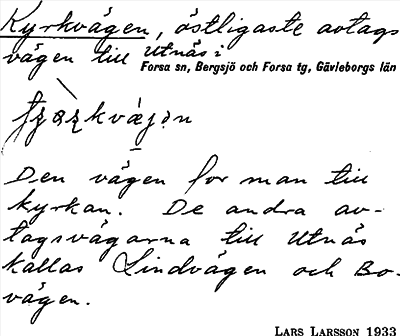 Kyrkvägen, östligaste avtags
vägen till Utnäs i
Forsa sn, Bergsjö och Forsa tg, Gävleborgs län
Den vägen for man till
kyrkan. De andra av-
tagsvägarna till Utnäs
kallas Lindvägen och Bo-
vägen.
LARS LARSSON 1933